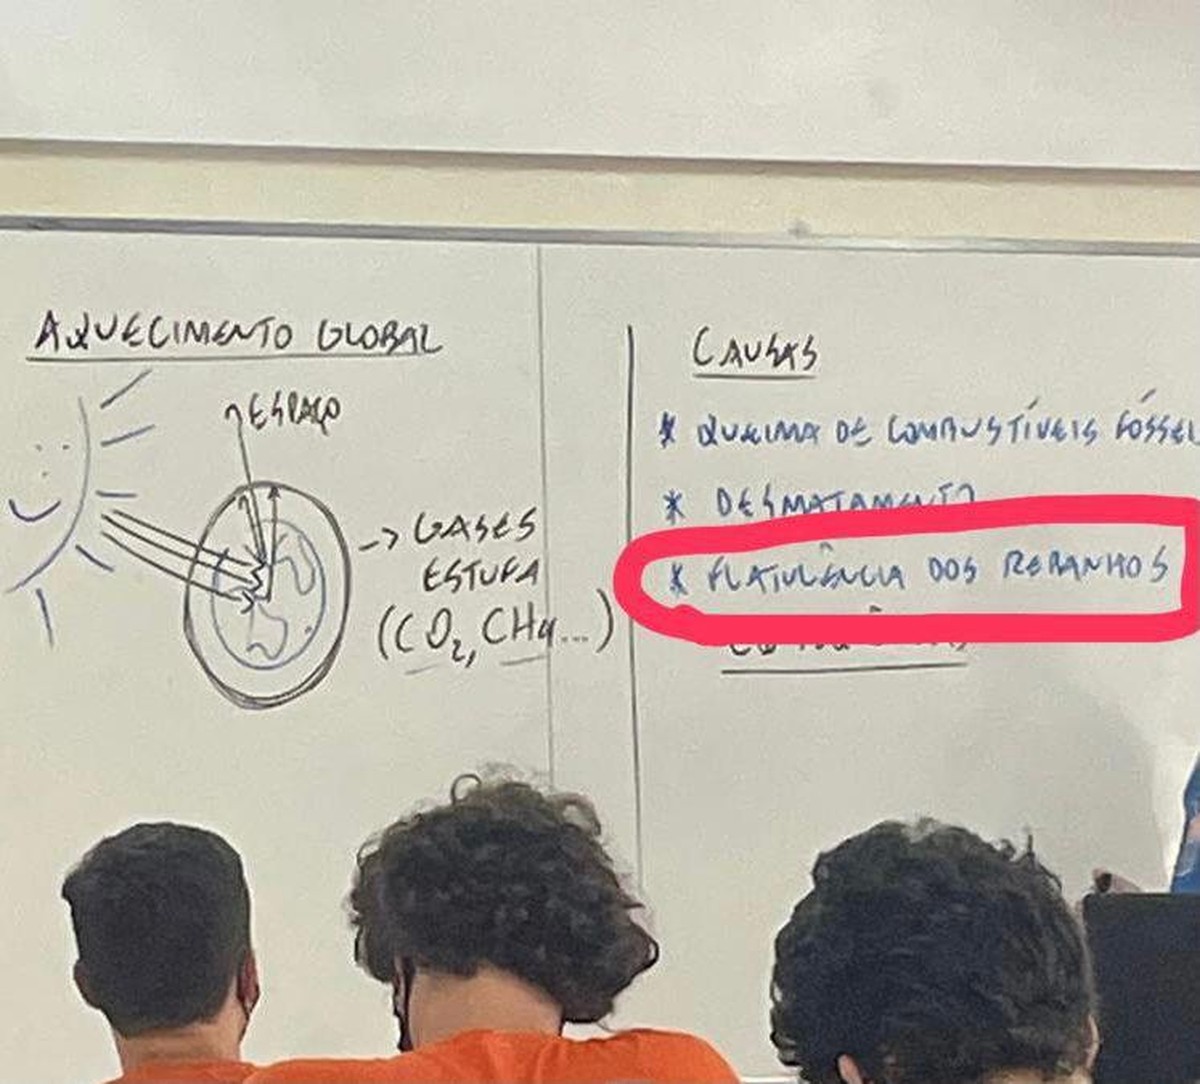 AQUECIMENTO GLOBAL
ESPAÇO
-> GASES
ESTUFA
(CO₂, CH₄...)
CAUSAS
* QUEIMA DE COMBUSTÍVEIS FÓSSEI
* DESMATAMENTO
* FLATULÊNCIA DOS REBANHOS